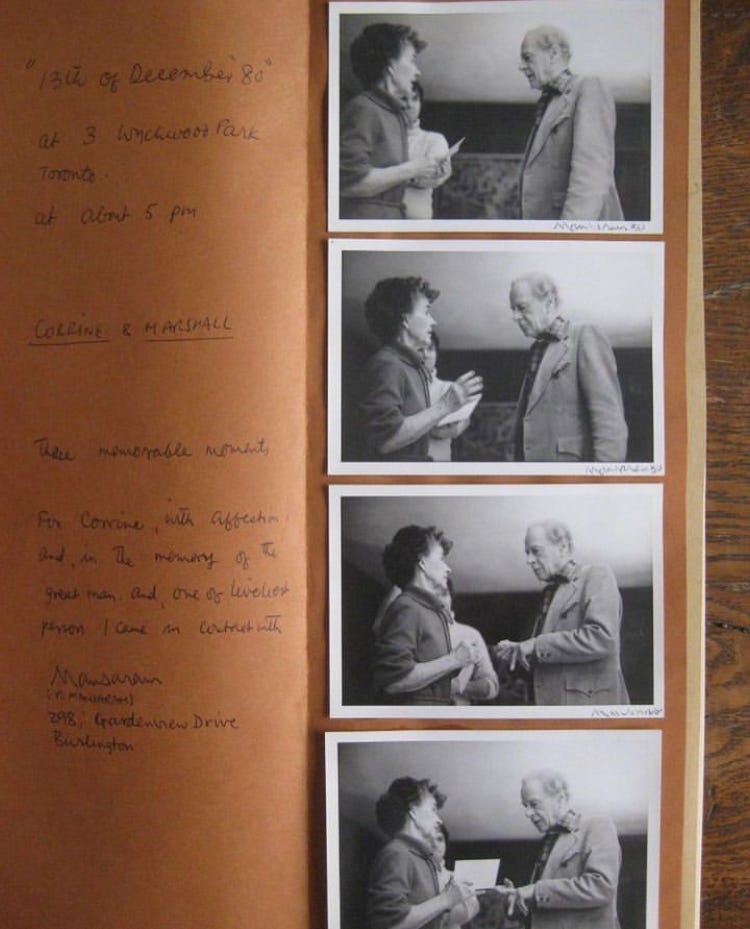 "13th of December '80"
at 3 Wychwood Park
Toronto.
at about 5 pm
CORRINE & MARSHALL
These memorable moments
For Corrine, with affection
and, in the memory of the
great man. and, one of liveliest
person I came in contact with
Mansaram
(P. MANSARAM)
298, Gardenview Drive
Burlington
Mansaram 80
Mansaram 80
Mansaram 80